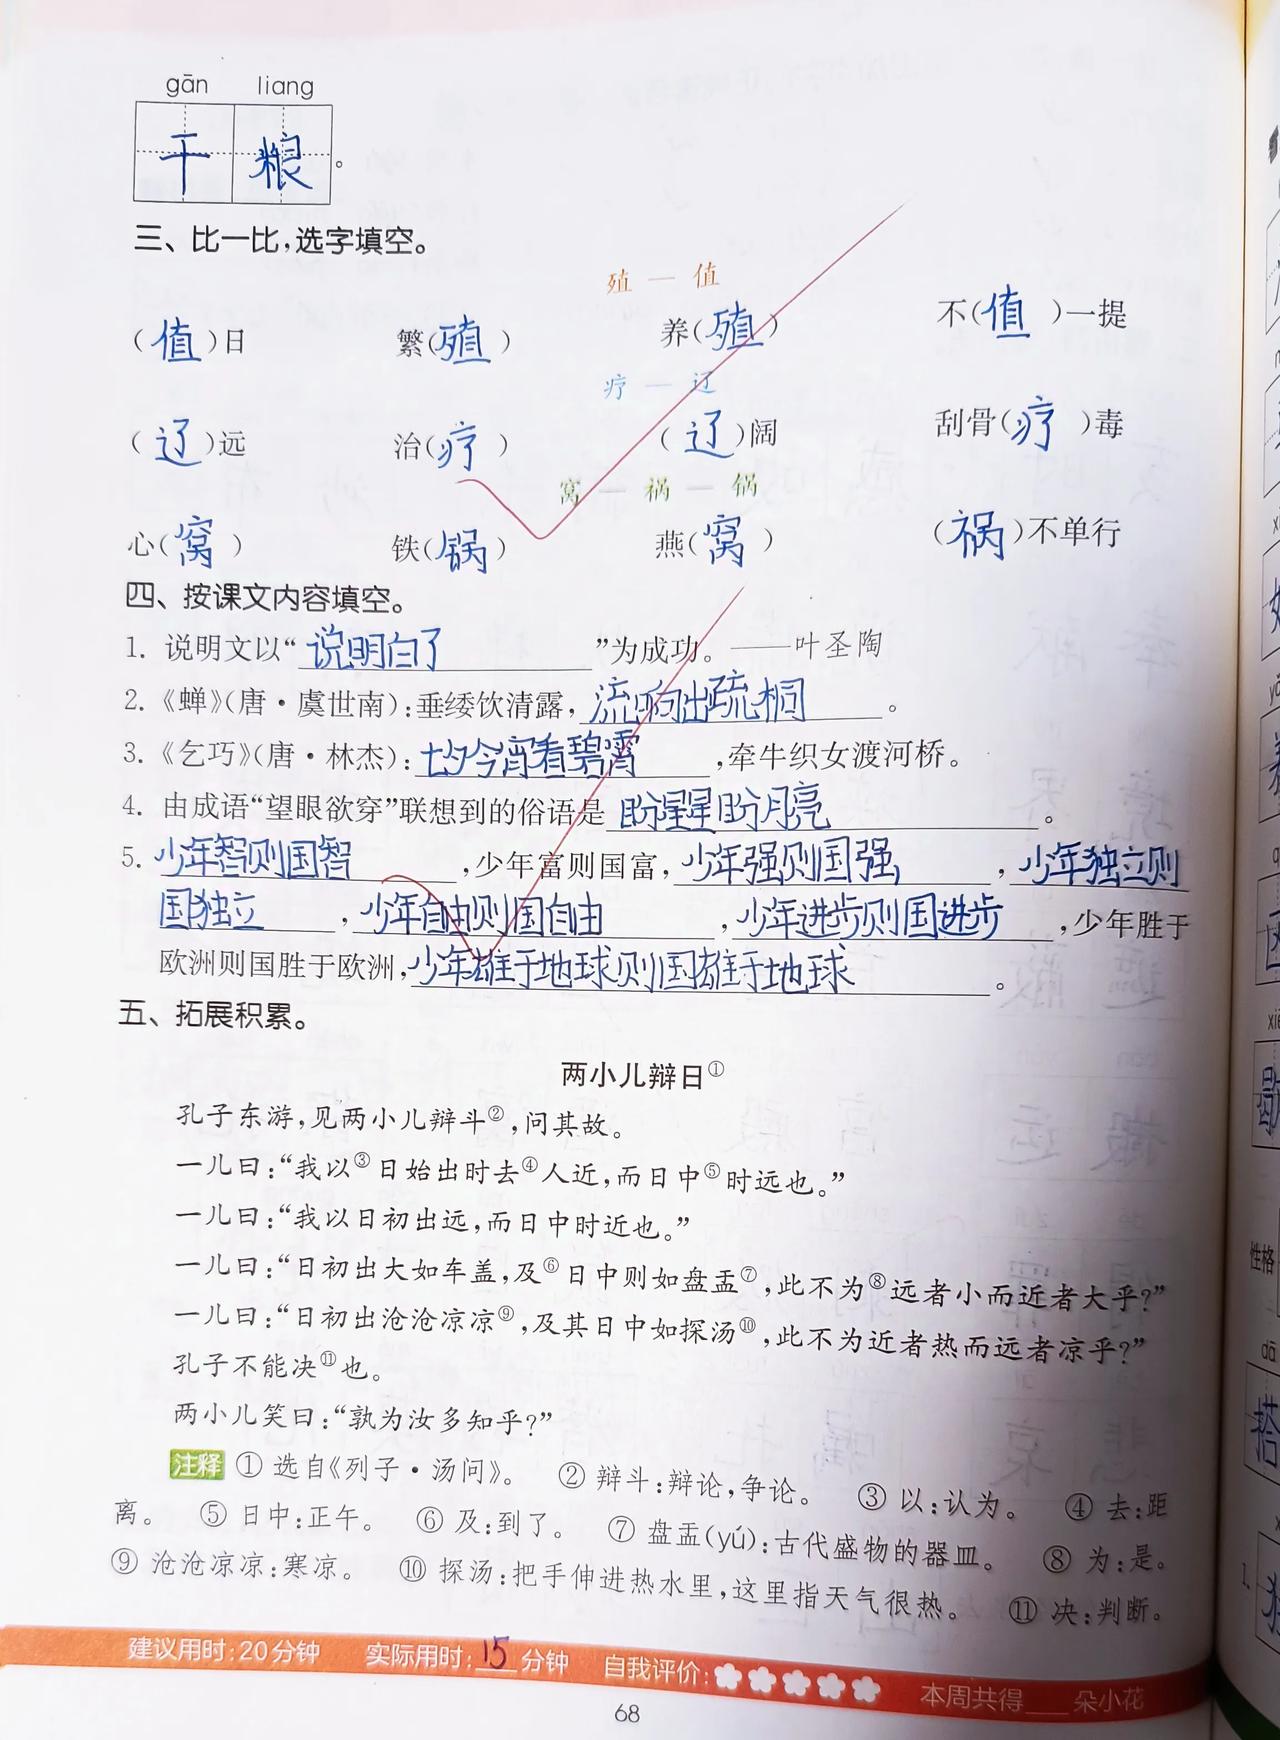 gān liang
干粮。
三、比一比，选字填空。
殖 — 值
（值）日 繁（殖） 养（殖） 不（值）一提
疗 — 辽
（辽）远 治（疗） （辽）阔 刮骨（疗）毒
窝 — 祸 — 锅
心（窝） 铁（锅） 燕（窝） （祸）不单行
四、按课文内容填空。
1. 说明文以“说明白了”为成功。——叶圣陶
2.《蝉》（唐·虞世南）：垂缕饮清露，流响出疏桐。
3.《乞巧》（唐·林杰）：七夕今宵看碧霄，牵牛织女渡河桥。
4. 由成语“望眼欲穿”联想到的俗语是盼星星盼月亮。
5. 少年智则国智，少年富则国富，少年强则国强，少年独立则
国独立，少年自由则国自由，少年进步则国进步，少年胜于
欧洲则国胜于欧洲，少年雄于地球则国雄于地球。
五、拓展积累。
两小儿辩日①
孔子东游，见两小儿辩斗②，问其故。
一儿曰：“我以③日始出时去④人近，而日中⑤时远也。”
一儿曰：“我以日初出远，而日中时近也。”
一儿曰：“日初出大如车盖，及⑥日中则如盘盂⑦，此不为⑧远者小而近者大乎？”
一儿曰：“日初出沧沧凉凉⑨，及其日中如探汤⑩，此不为近者热而远者凉乎？”
孔子不能决⑪也。
两小儿笑曰：“孰为汝多知乎？”
注释 ① 选自《列子·汤问》。 ② 辩斗：辩论，争论。 ③ 以：认为。 ④ 去：距
离。 ⑤ 日中：正午。 ⑥ 及：到了。 ⑦ 盘盂(yú)：古代盛物的器皿。 ⑧ 为：是。
⑨ 沧沧凉凉：寒凉。 ⑩ 探汤：把手伸进热水里，这里指天气很热。 ⑪ 决：判断。
建议用时：20分钟 实际用时：15分钟 自我评价： 本周共得___朵小花
68
性格
dā
搭
1.